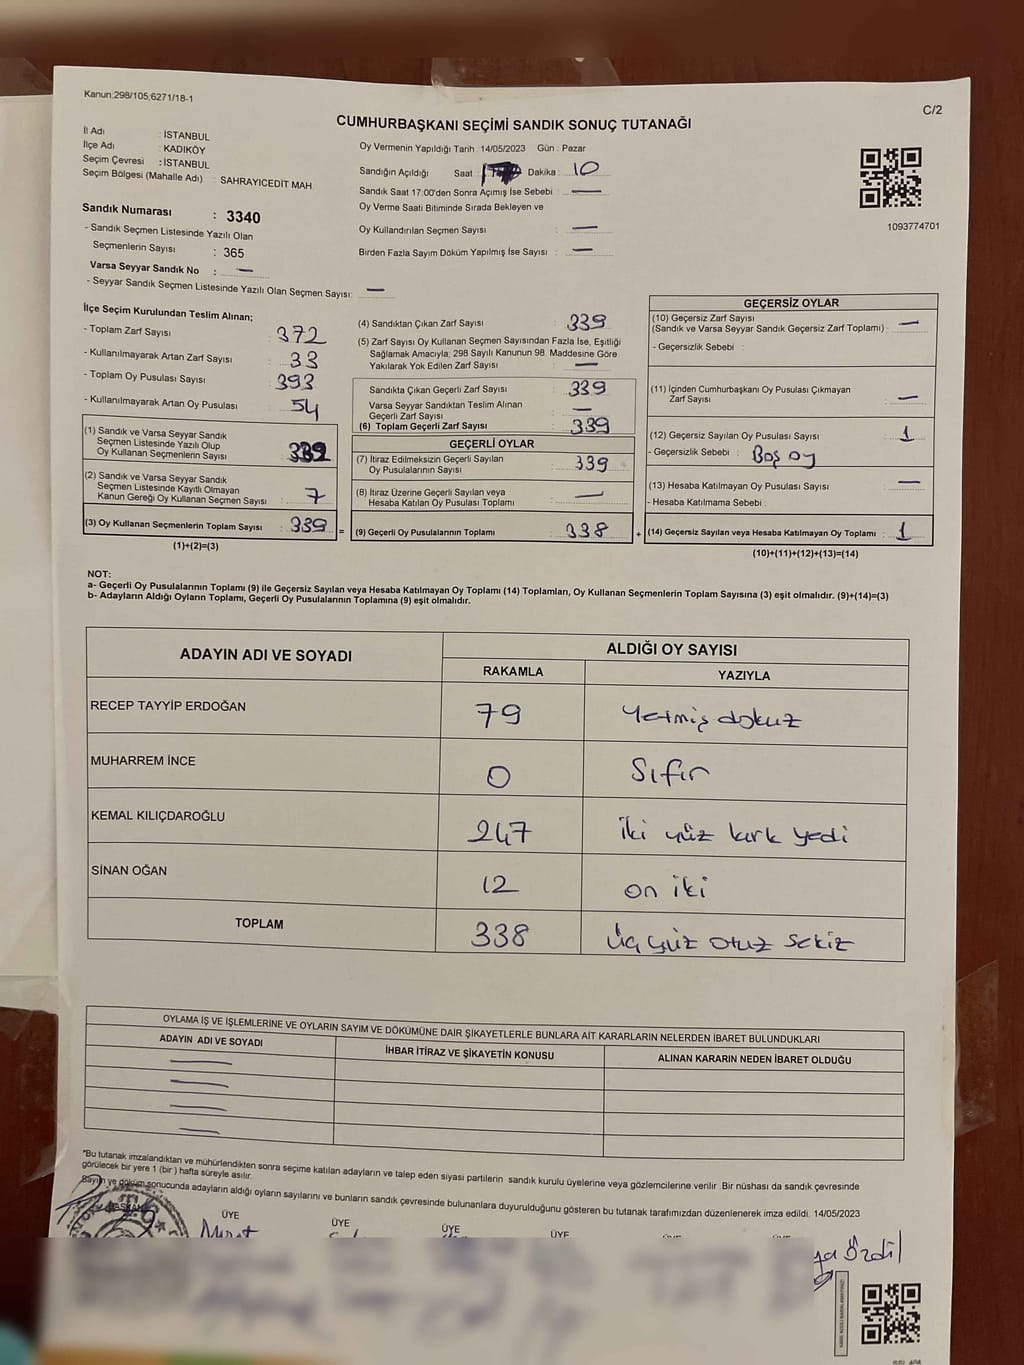 Kanun;298/105;6271/18-1
C/2
CUMHURBAŞKANI SEÇİMİ SANDIK SONUÇ TUTANAĞI
İl Adı : İSTANBUL
İlçe Adı : KADIKÖY
Seçim Çevresi : İSTANBUL
Seçim Bölgesi (Mahalle Adı) : SAHRAYICEDİT MAH.
Sandık Numarası : 3340
- Sandık Seçmen Listesinde Yazılı Olan
Seçmenlerin Sayısı : 365
Varsa Seyyar Sandık No : —
- Seyyar Sandık Seçmen Listesinde Yazılı Olan Seçmen Sayısı: —
Oy Vermenin Yapıldığı Tarih : 14/05/2023 Gün : Pazar
Sandığın Açıldığı Saat Dakika : 10
Sandık Saat 17:00'den Sonra Açımış İse Sebebi : —
Oy Verme Saati Bitiminde Sırada Bekleyen ve
Oy Kullandırılan Seçmen Sayısı : —
Birden Fazla Sayım Döküm Yapılmış İse Sayısı : —
1093774701
İlçe Seçim Kurulundan Teslim Alınan;
- Toplam Zarf Sayısı : 372
- Kullanılmayarak Artan Zarf Sayısı : 33
- Toplam Oy Pusulası Sayısı : 393
- Kullanılmayarak Artan Oy Pusulası : 54
(1) Sandık ve Varsa Seyyar Sandık
Seçmen Listesinde Yazılı Olup
Oy Kullanan Seçmenlerin Sayısı
(2) Sandık ve Varsa Seyyar Sandık
Seçmen Listesinde Kayıtlı Olmayan
Kanun Gereği Oy Kullanan Seçmen Sayısı : 7
(3) Oy Kullanan Seçmenlerin Toplam Sayısı : 339 =
(1)+(2)=(3)
(4) Sandıktan Çıkan Zarf Sayısı : 339
(5) Zarf Sayısı Oy Kullanan Seçmen Sayısından Fazla İse, Eşitliği
Sağlamak Amacıyla; 298 Sayılı Kanunun 98. Maddesine Göre
Yakılarak Yok Edilen Zarf Sayısı : —
Sandıkta Çıkan Geçerli Zarf Sayısı : 339
Varsa Seyyar Sandıktan Teslim Alınan
Geçerli Zarf Sayısı : —
(6) Toplam Geçerli Zarf Sayısı : 339
GEÇERLİ OYLAR
(7) İtiraz Edilmeksizin Geçerli Sayılan
Oy Pusulalarının Sayısı : 339
(8) İtiraz Üzerine Geçerli Sayılan veya
Hesaba Katılan Oy Pusulası Toplamı : —
(9) Geçerli Oy Pusulalarının Toplamı : 338 +
GEÇERSİZ OYLAR
(10) Geçersiz Zarf Sayısı
(Sandık ve Varsa Seyyar Sandık Geçersiz Zarf Toplamı) : —
- Geçersizlik Sebebi :
(11) İçinden Cumhurbaşkanı Oy Pusulası Çıkmayan
Zarf Sayısı : —
(12) Geçersiz Sayılan Oy Pusulası Sayısı : 1
- Geçersizlik Sebebi : Boş oy
(13) Hesaba Katılmayan Oy Pusulası Sayısı : —
- Hesaba Katılmama Sebebi :
(14) Geçersiz Sayılan veya Hesaba Katılmayan Oy Toplamı : 1
(10)+(11)+(12)+(13)=(14)
NOT:
a- Geçerli Oy Pusulalarının Toplamı (9) ile Geçersiz Sayılan veya Hesaba Katılmayan Oy Toplamı (14) Toplamları, Oy Kullanan Seçmenlerin Toplam Sayısına (3) eşit olmalıdır. (9)+(14)=(3)
b- Adayların Aldığı Oyların Toplamı, Geçerli Oy Pusulalarının Toplamına (9) eşit olmalıdır.
ADAYIN ADI VE SOYADI ALDIĞI OY SAYISI
RAKAMLA YAZIYLA
RECEP TAYYİP ERDOĞAN 79 Yetmiş dokuz
MUHARREM İNCE 0 Sıfır
KEMAL KILIÇDAROĞLU 247 iki yüz kırk yedi
SİNAN OĞAN 12 on iki
TOPLAM 338 üç yüz otuz sekiz
OYLAMA İŞ VE İŞLEMLERİNE VE OYLARIN SAYIM VE DÖKÜMÜNE DAİR ŞİKAYETLERLE BUNLARA AİT KARARLARIN NELERDEN İBARET BULUNDUKLARI
ADAYIN ADI VE SOYADI İHBAR İTİRAZ VE ŞİKAYETİN KONUSU ALINAN KARARIN NEDEN İBARET OLDUĞU
*Bu tutanak imzalandıktan ve mühürlendikten sonra seçime katılan adayların ve talep eden siyasi partilerin sandık kurulu üyelerine veya gözlemcilerine verilir .Bir nüshası da sandık çevresinde
görülecek bir yere 1 (bir ) hafta süreyle asılır.
Sayım ve döküm sonucunda adayların aldığı oyların sayılarını ve bunların sandık çevresinde bulunanlara duyurulduğunu gösteren bu tutanak tarafımızdan düzenlenerek imza edildi. 14/05/2023
BAŞKAN ÜYE ÜYE ÜYE ÜYE
Murat
Özdil